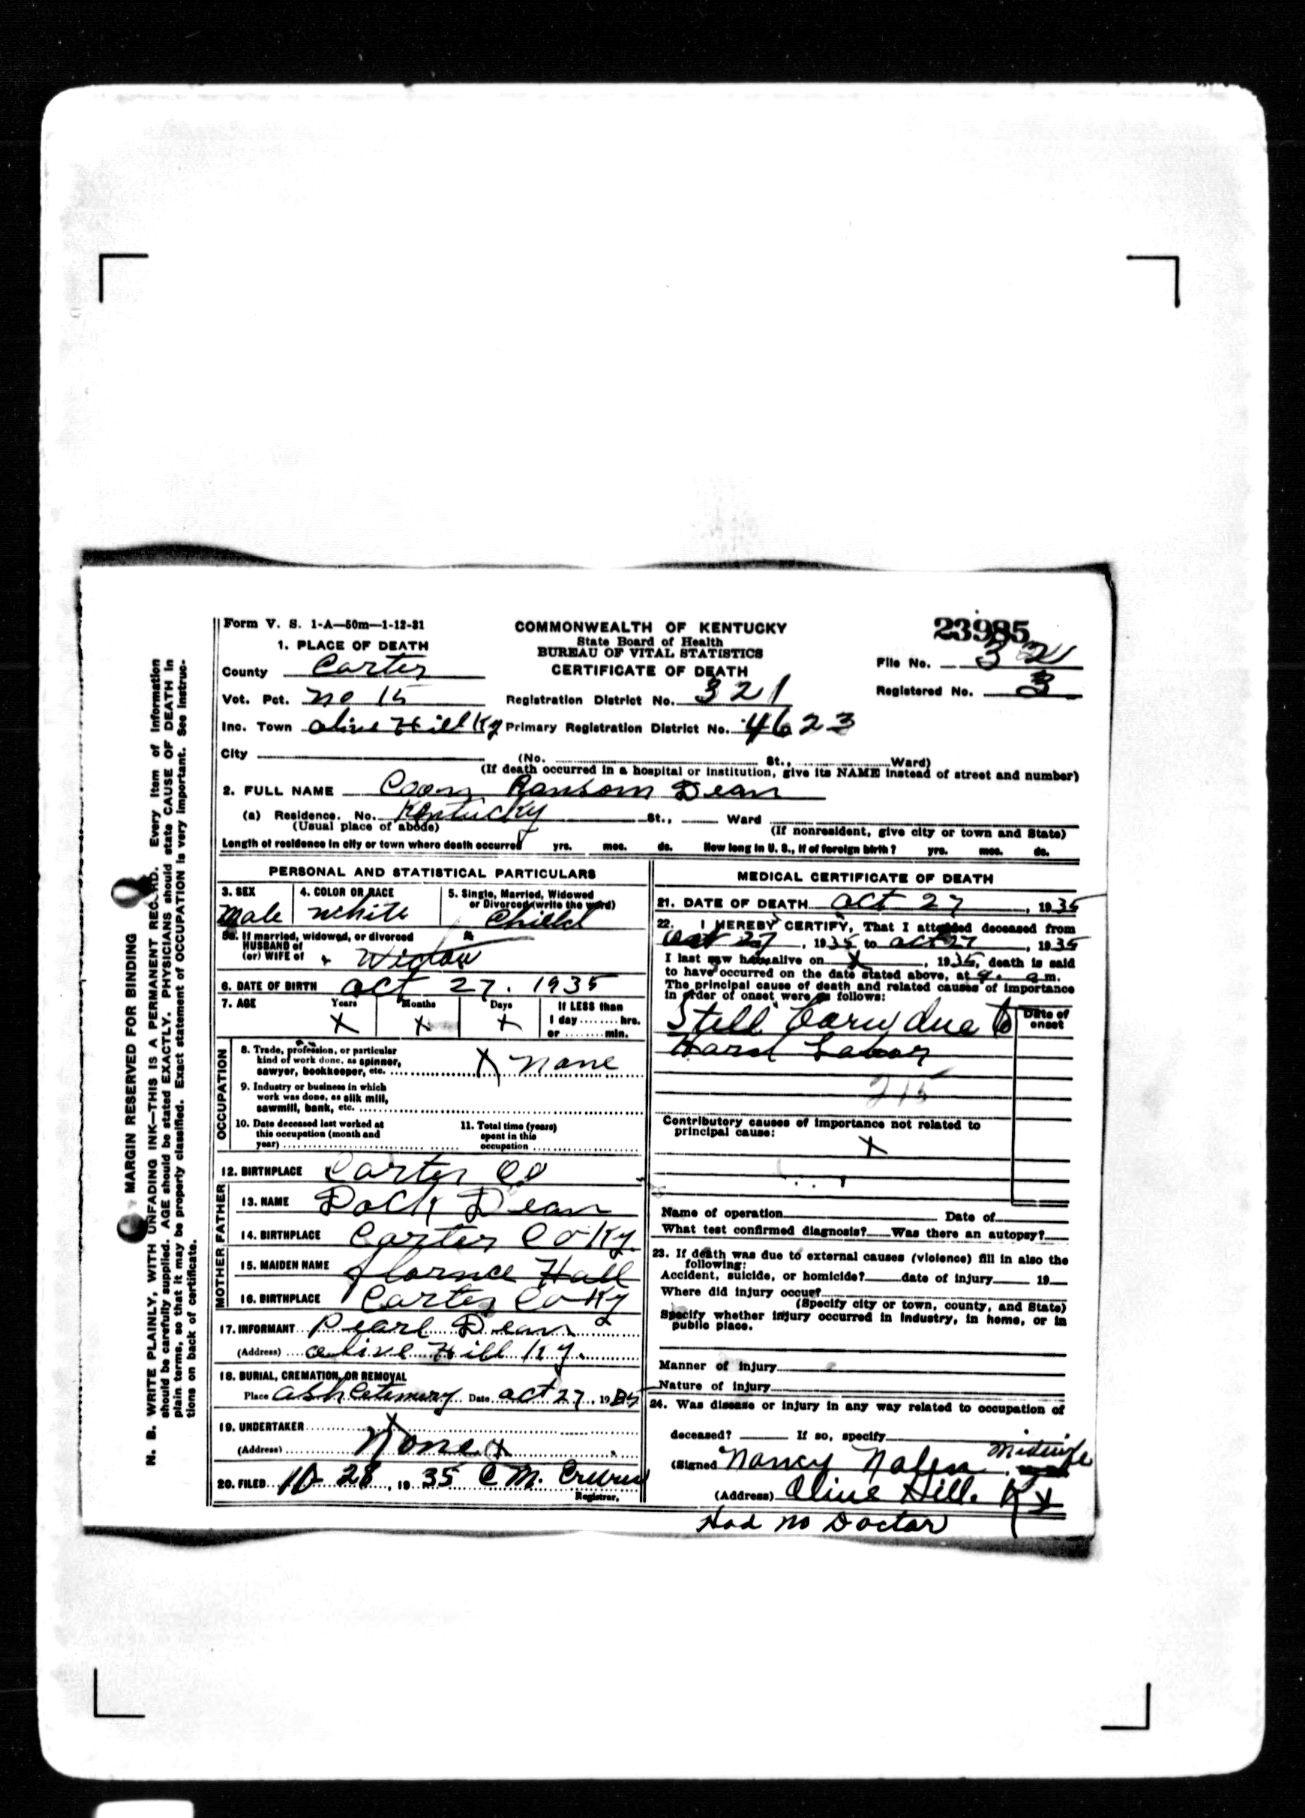 Form V. S. 1-A—50m—1-12-31
COMMONWEALTH OF KENTUCKY
State Board of Health
BUREAU OF VITAL STATISTICS
CERTIFICATE OF DEATH
23985
File No. 32
Registered No. 3
1. PLACE OF DEATH
County Carter
Vot. Pct. no 15
Registration District No. 321
Inc. Town Olive Hill Ky Primary Registration District No. 4623
City (No. St., Ward)
(If death occurred in a hospital or institution, give its NAME instead of street and number)
2. FULL NAME Ransom Dean
(a) Residence. No. Kentucky St., Ward
(Usual place of abode) (If nonresident, give city or town and State)
Length of residence in city or town where death occurred yrs. mos. ds. How long in U. S., if of foreign birth? yrs. mos. ds.
PERSONAL AND STATISTICAL PARTICULARS
3. SEX 4. COLOR OR RACE 5. Single, Married, Widowed
or Divorced (write the word)
Male White Chilld
5a. If married, widowed, or divorced
HUSBAND of
(or) WIFE of x Widow
6. DATE OF BIRTH Oct 27. 1935
7. AGE Years Months Days If LESS than
1 day ........ hrs.
or ........ min.
X X X
OCCUPATION
8. Trade, profession, or particular
kind of work done, as spinner,
sawyer, bookkeeper, etc. X none
9. Industry or business in which
work was done, as silk mill,
sawmill, bank, etc.
10. Date deceased last worked at
this occupation (month and
year)
11. Total time (years)
spent in this
occupation
12. BIRTHPLACE Carter Co
FATHER
13. NAME Dock Dean
14. BIRTHPLACE Carter Co Ky.
MOTHER
15. MAIDEN NAME Flornce Hall
16. BIRTHPLACE Carter Co Ky
17. INFORMANT Pearl Dean
(Address) Olive Hill Ky.
18. BURIAL, CREMATION, OR REMOVAL
Place Ash Cetemery Date Oct 27, 1935
19. UNDERTAKER
(Address) None X
20. FILED 10-28, 1935 C M.
Registrar.
MEDICAL CERTIFICATE OF DEATH
21. DATE OF DEATH Oct 27, 1935
22. I HEREBY CERTIFY, That I attended deceased from
Oct 27, 1935 to Oct 27, 1935
I last saw h alive on X, 1935, death is said
to have occurred on the date stated above, at 9. a m.
The principal cause of death and related causes of importance
in order of onset were as follows:
Date of
onset
Still Born due to
Hard Labor
Contributory causes of importance not related to
principal cause:
X
Name of operation Date of
What test confirmed diagnosis? Was there an autopsy?
23. If death was due to external causes (violence) fill in also the
following:
Accident, suicide, or homicide? date of injury 19
Where did injury occur?
(Specify city or town, county, and State)
Specify whether injury occurred in industry, in home, or in
public place.
Manner of injury
Nature of injury
24. Was disease or injury in any way related to occupation of
deceased? If so, specify
(Signed Nancy Nolen Midwife
(Address) Olive Hill. Ky
Had no Doctor
MARGIN RESERVED FOR BINDING
N. B. WRITE PLAINLY, WITH UNFADING INK—THIS IS A PERMANENT RECORD. Every item of information
should be carefully supplied. AGE should be stated EXACTLY. PHYSICIANS should state CAUSE OF DEATH in
plain terms, so that it may be properly classified. Exact statement of OCCUPATION is very important. See instruc-
tions on back of certificate.